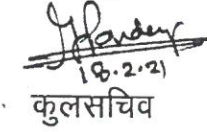 18.2.21
कुलसचिव